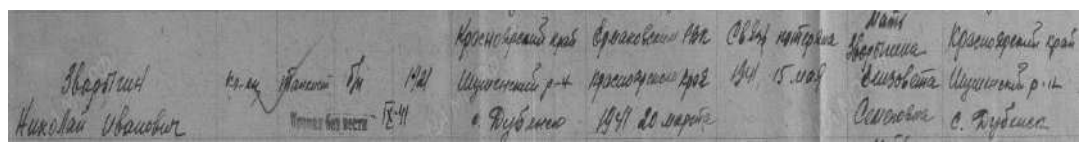 Звадыгин
Николай Иванович
кр-ец
б/п
1921
Пропал без вести IX-41
Красноярский край
Шушенский р-н
с. Дубенск
Ермаковский РВК
Красноярского края
1941 20 марта
Связь потеряна
1941 15 мая
Мать
Звадыгина
Елизовета
Семеновна
Красноярский край
Шушенский р-н
с. Дубенск